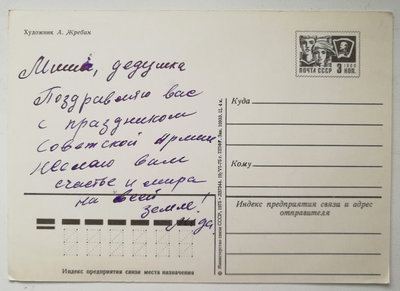 Художник А. Жребин
Миша, дедушка
Поздравляю вас
с праздником
Советской Армии
Желаю вам
счастье и мира
на всей
земле!
ПОЧТА СССР
3
КОП.
Куда
Кому
Индекс предприятия связи и адрес
отправителя
Индекс предприятия связи места назначения